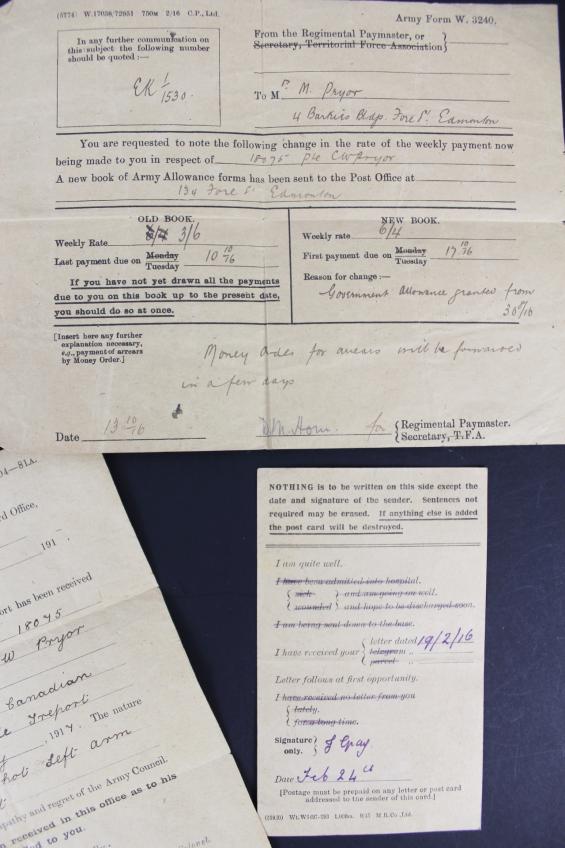 (5774) W.17056/72951 750M 2/16 C.P., Ltd.
Army Form W. 3240.
In any further communication on
this subject the following number
should be quoted :—
EK 1/1530.
From the Regimental Paymaster, or
Secretary, Territorial Force Association
To Mr. M. Pryor
4 Barkiss Bldgs. Fore St. Edmonton
You are requested to note the following change in the rate of the weekly payment now
being made to you in respect of 18075 Pte CW Pryor
A new book of Army Allowance forms has been sent to the Post Office at
134 Fore St Edmonton
OLD BOOK.
Weekly Rate 3/6
Last payment due on Monday Tuesday 10 10/16
If you have not yet drawn all the payments
due to you on this book up to the present date,
you should do so at once.
NEW BOOK.
Weekly rate 6/4
First payment due on Monday Tuesday 17 10/16
Reason for change :—
Government allowance granted from
[Insert here any further
explanation necessary,
e.g., payment of arrears
by Money Order.]
Money order for arrears will be forwarded
in a few days
Date 13 10/16
for Regimental Paymaster.
Secretary, T.F.A.
04—81A.
rd Office,
191
ort has been received
18075
W Pryor
Canadian
Treport
, 1917. The nature
hot Left arm
pathy and regret of the Army Council.
n received in this office as to his
ed to you.
Colonel.
NOTHING is to be written on this side except the
date and signature of the sender. Sentences not
required may be erased. If anything else is added
the post card will be destroyed.
I am quite well.
I have been admitted into hospital.
sick and am going on well.
wounded and hope to be discharged soon.
I am being sent down to the base.
I have received your letter dated 19/2/16
telegram ,,
parcel ,,
Letter follows at first opportunity.
I have received no letter from you
lately.
for a long time.
Signature only. J Gray.
Date Feb 24th
[Postage must be prepaid on any letter or post card
addressed to the sender of this card.]